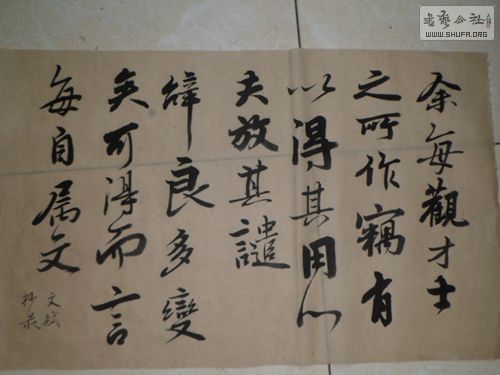 余每觀才士
之所作竊有
以得其用心
夫放其譴
辭良多變
矣可得而言
每自属文
文赋
抄录
書藝公社
WWW.SHUFA.ORG